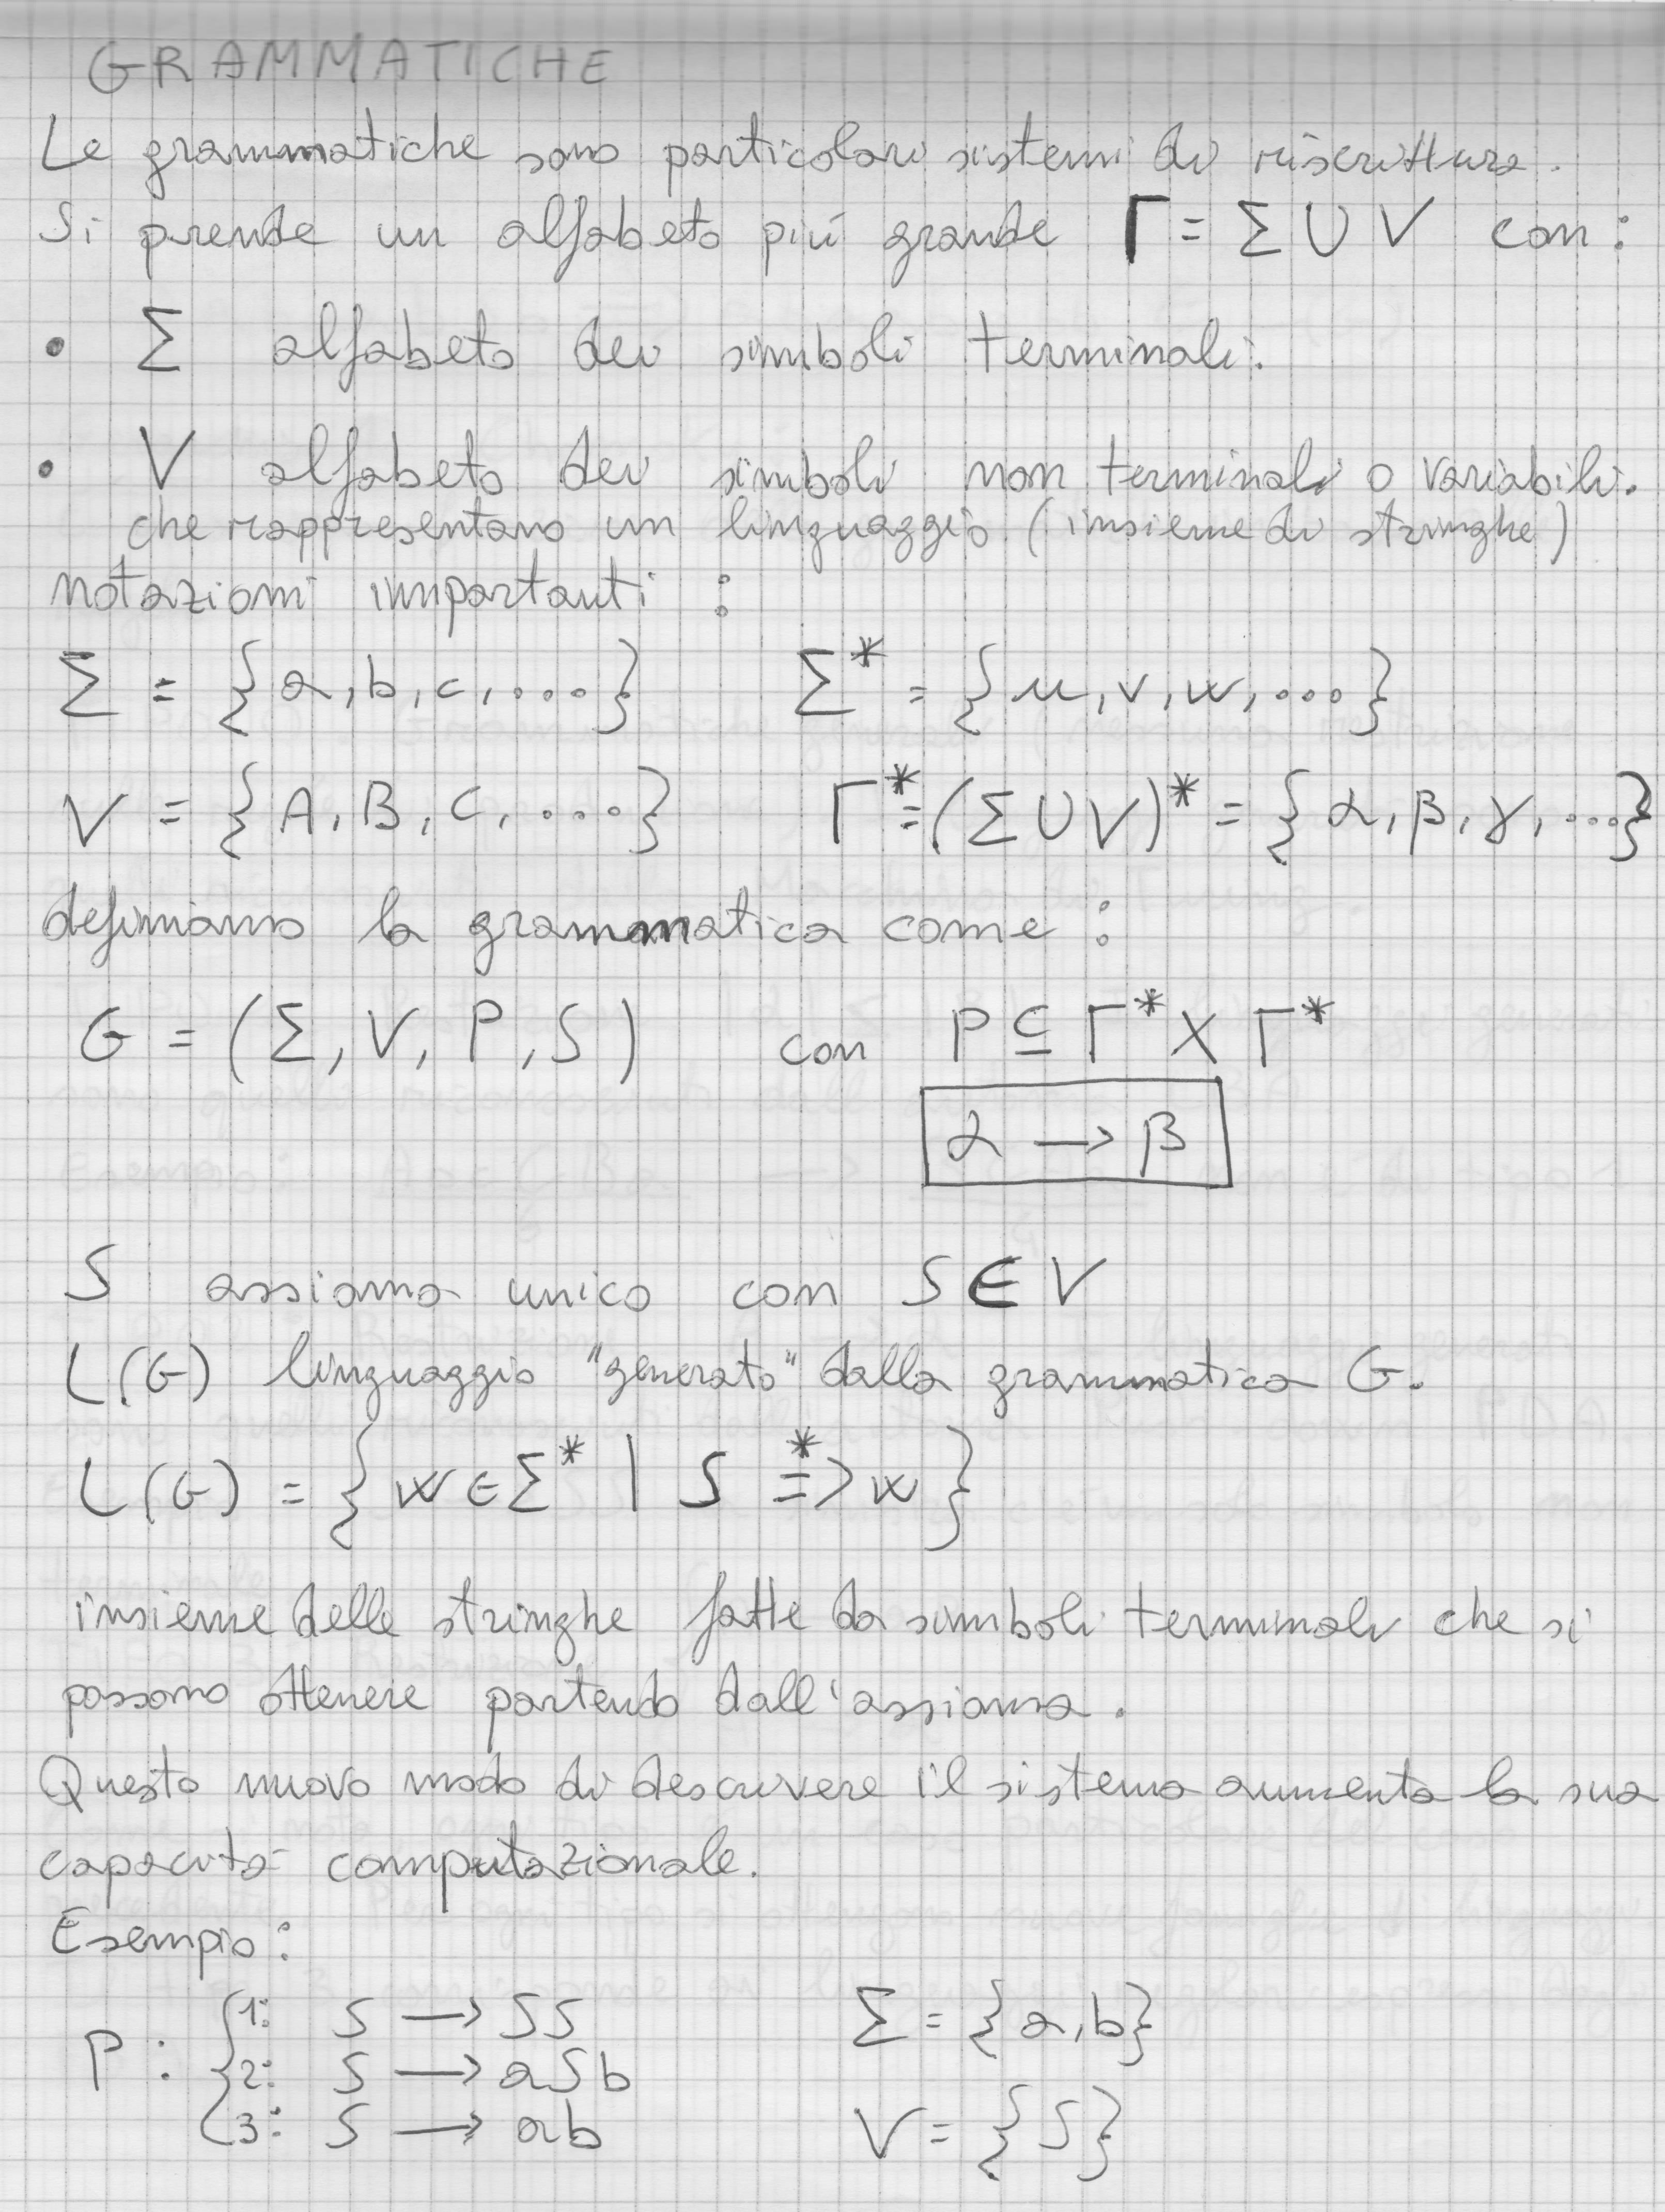 GRAMMATICHE
Le grammatiche sono particolari sistemi di riscrittura.
Si prende un alfabeto più grande Γ = Σ ∪ V con:
• Σ alfabeto dei simboli terminali.
• V alfabeto dei simboli non terminali o variabili.
che rappresentano un linguaggio (insieme di stringhe)
notazioni importanti:
Σ = {a, b, c, ...} Σ* = {u, v, w, ...}
V = {A, B, C, ...} Γ* = (Σ ∪ V)* = {α, β, γ, ...}
definiamo la grammatica come:
G = (Σ, V, P, S) con P ⊆ Γ* X Γ*
α → β
S assioma unico con S ∈ V
L(G) linguaggio "generato" dalla grammatica G.
L(G) = {w ∈ Σ* | S *=> w}
insieme delle stringhe fatte da simboli terminali che si
possono ottenere partendo dall'assioma.
Questo nuovo modo di descrivere il sistema aumenta la sua
capacità computazionale.
Esempio:
P: {1: S → SS Σ = {a, b}
2: S → aSb
3: S → ab V = {S}